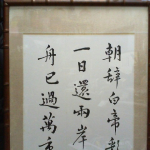 朝辭白帝彩
一日還兩岸
舟已過萬重